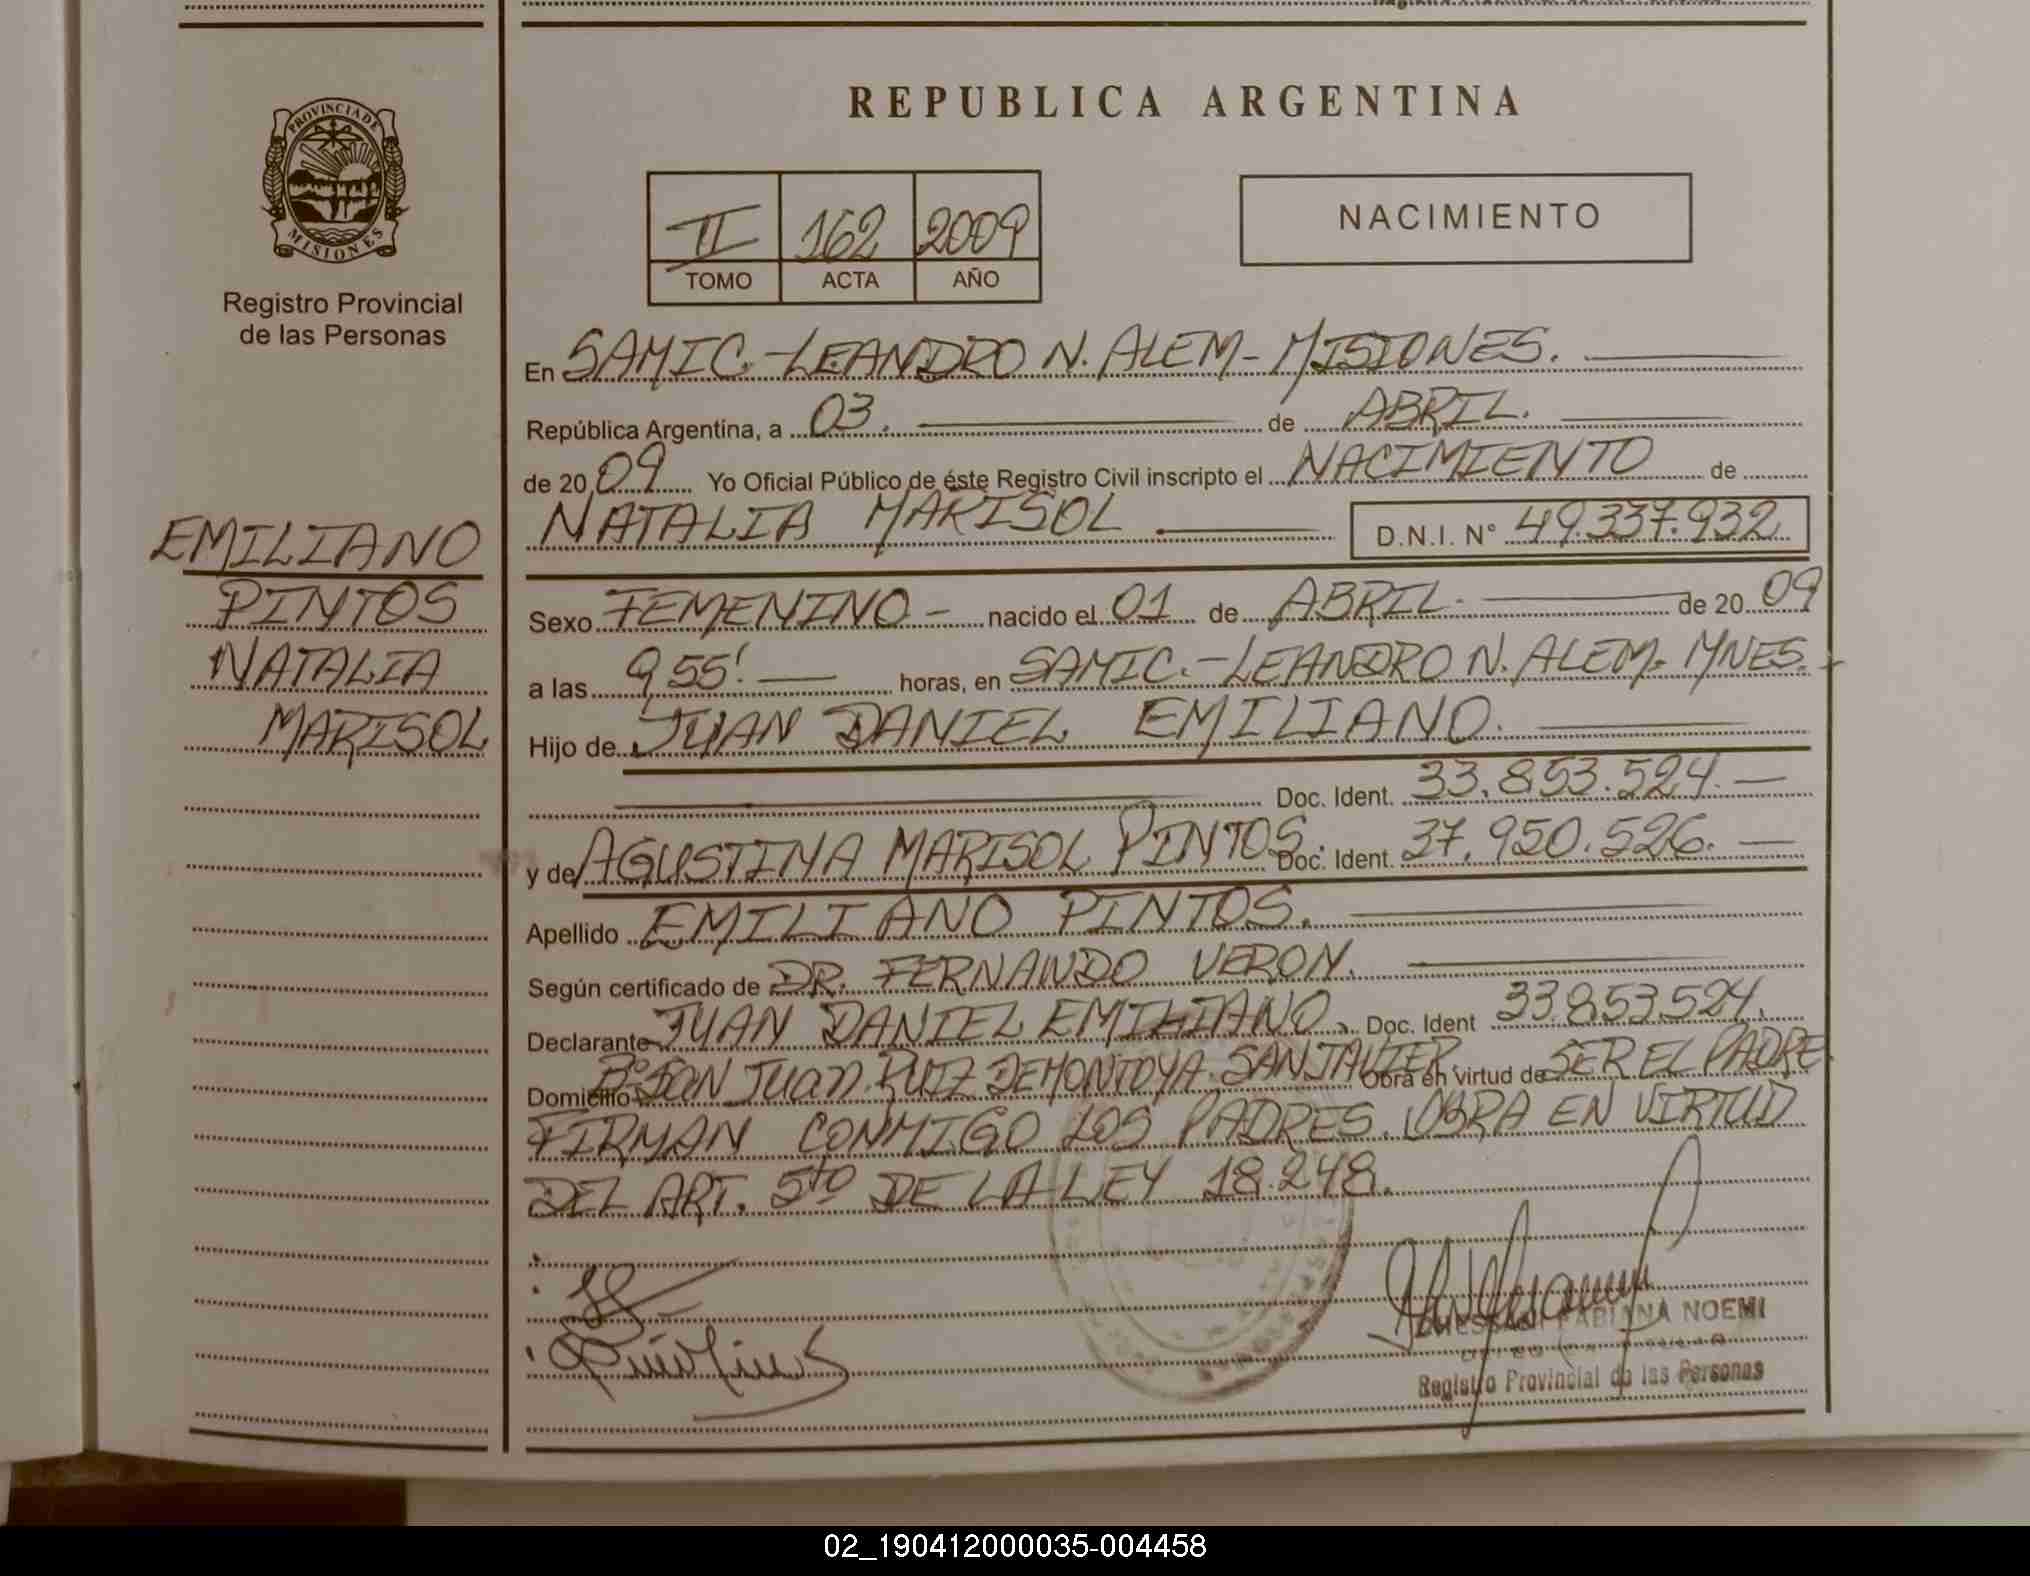 REPUBLICA ARGENTINA
PROVINCIA DE
MISIONES
Registro Provincial
de las Personas
II 162 2009
TOMO ACTA AÑO
NACIMIENTO
En SAMIC.-LEANDRO N. ALEM-MISIONES.
República Argentina, a 03. de ABRIL.
de 20 09 Yo Oficial Público de éste Registro Civil inscripto el NACIMIENTO de
NATALIA MARISOL D.N.I. N° 49.337.932
EMILIANO
PINTOS
NATALIA
MARISOL
Sexo FEMENINO- nacido el 01 de ABRIL. de 20 09
a las 9,55'. horas, en SAMIC.-LEANDRO N. ALEM. MNES.
Hijo de JUAN DANIEL EMILIANO.
Doc. Ident. 33.853.524.
y de AGUSTINA MARISOL PINTOS. Doc. Ident. 37.950.526.
Apellido EMILIANO PINTOS.
Según certificado de DR. FERNANDO VERON.
Declarante JUAN DANIEL EMILIANO. Doc. Ident 33.853.524.
Domicilio B° SAN JUAN. RUIZ DE MONTOYA. SAN JAVIER. Obra en virtud de SER EL PADRE.
FIRMAN CONMIGO LOS PADRES. OBRA EN VIRTUD
DEL ART. 5to DE LA LEY 18.248.
FABIANA NOEMI
Registro Provincial de las Personas
02_190412000035-004458